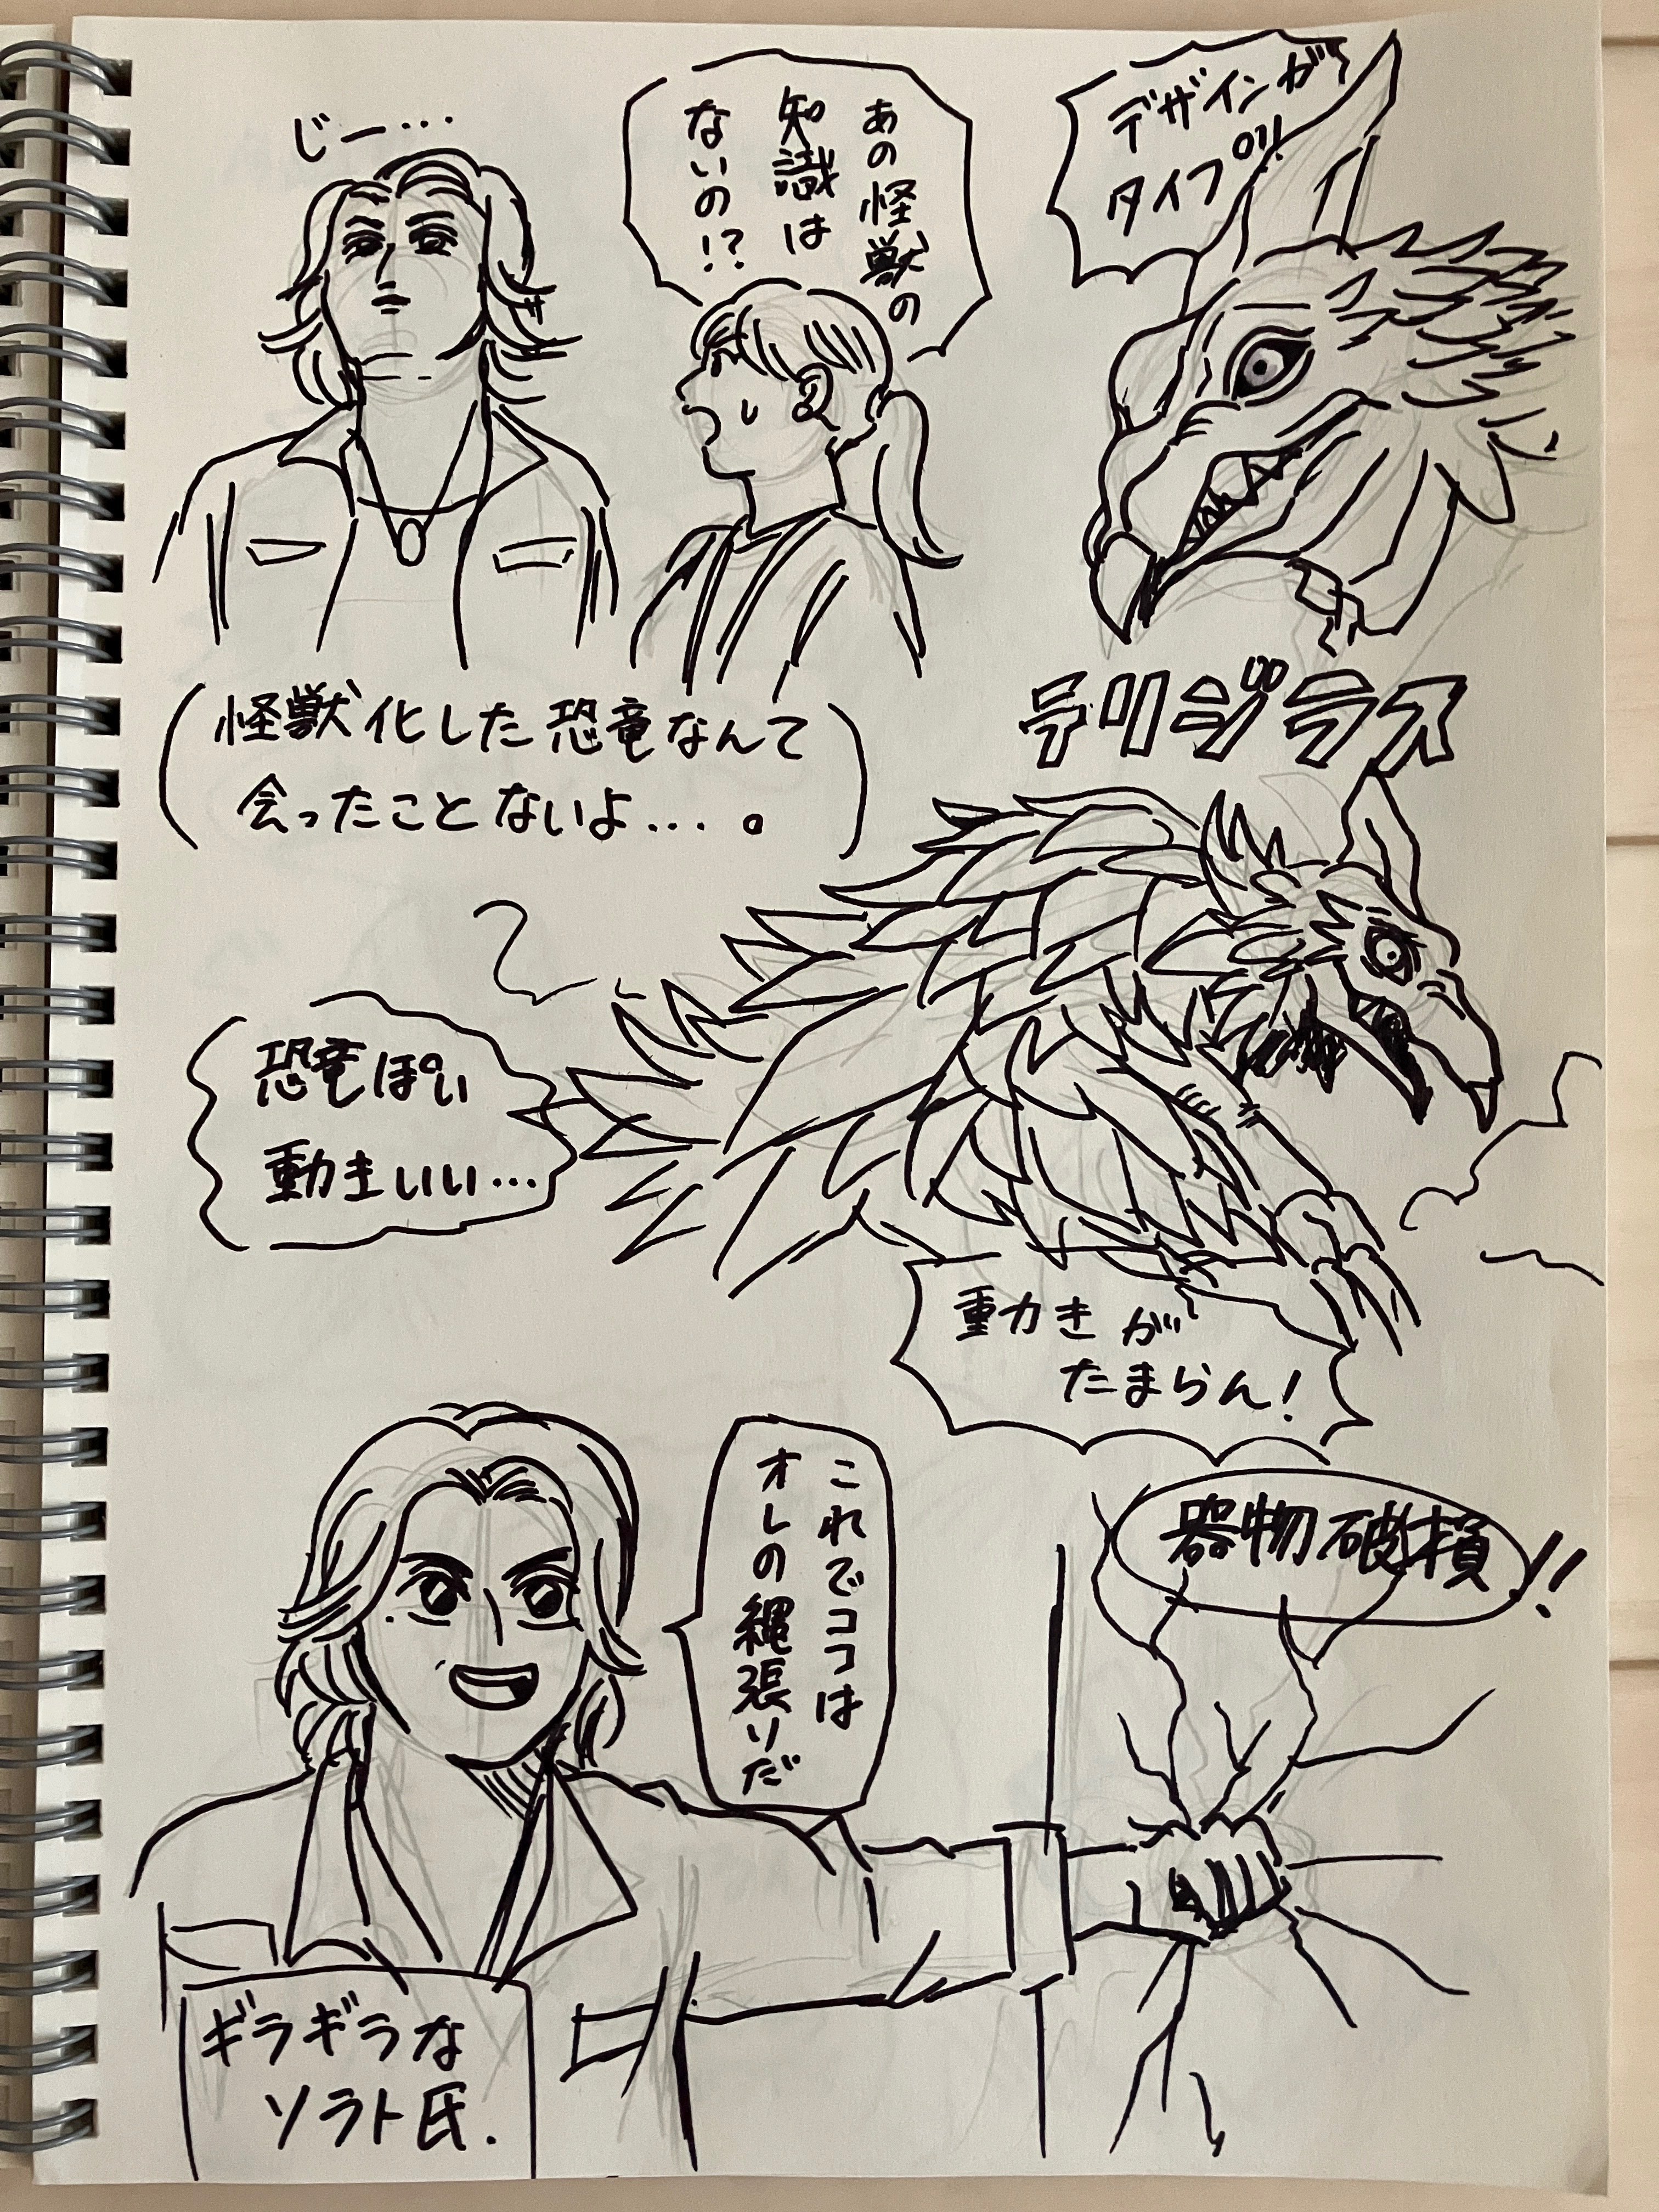 じー…
あの怪獣の
知識は
ないの!?
デザインが
タイプ!!
怪獣化した恐竜なんて
会ったことないよ…。
テリジラス
恐竜ぽい
動きいい…
動きが
たまらん!
これでココは
オレの縄張リだ
器物破損!!
ギラギラな
ソラト氏.